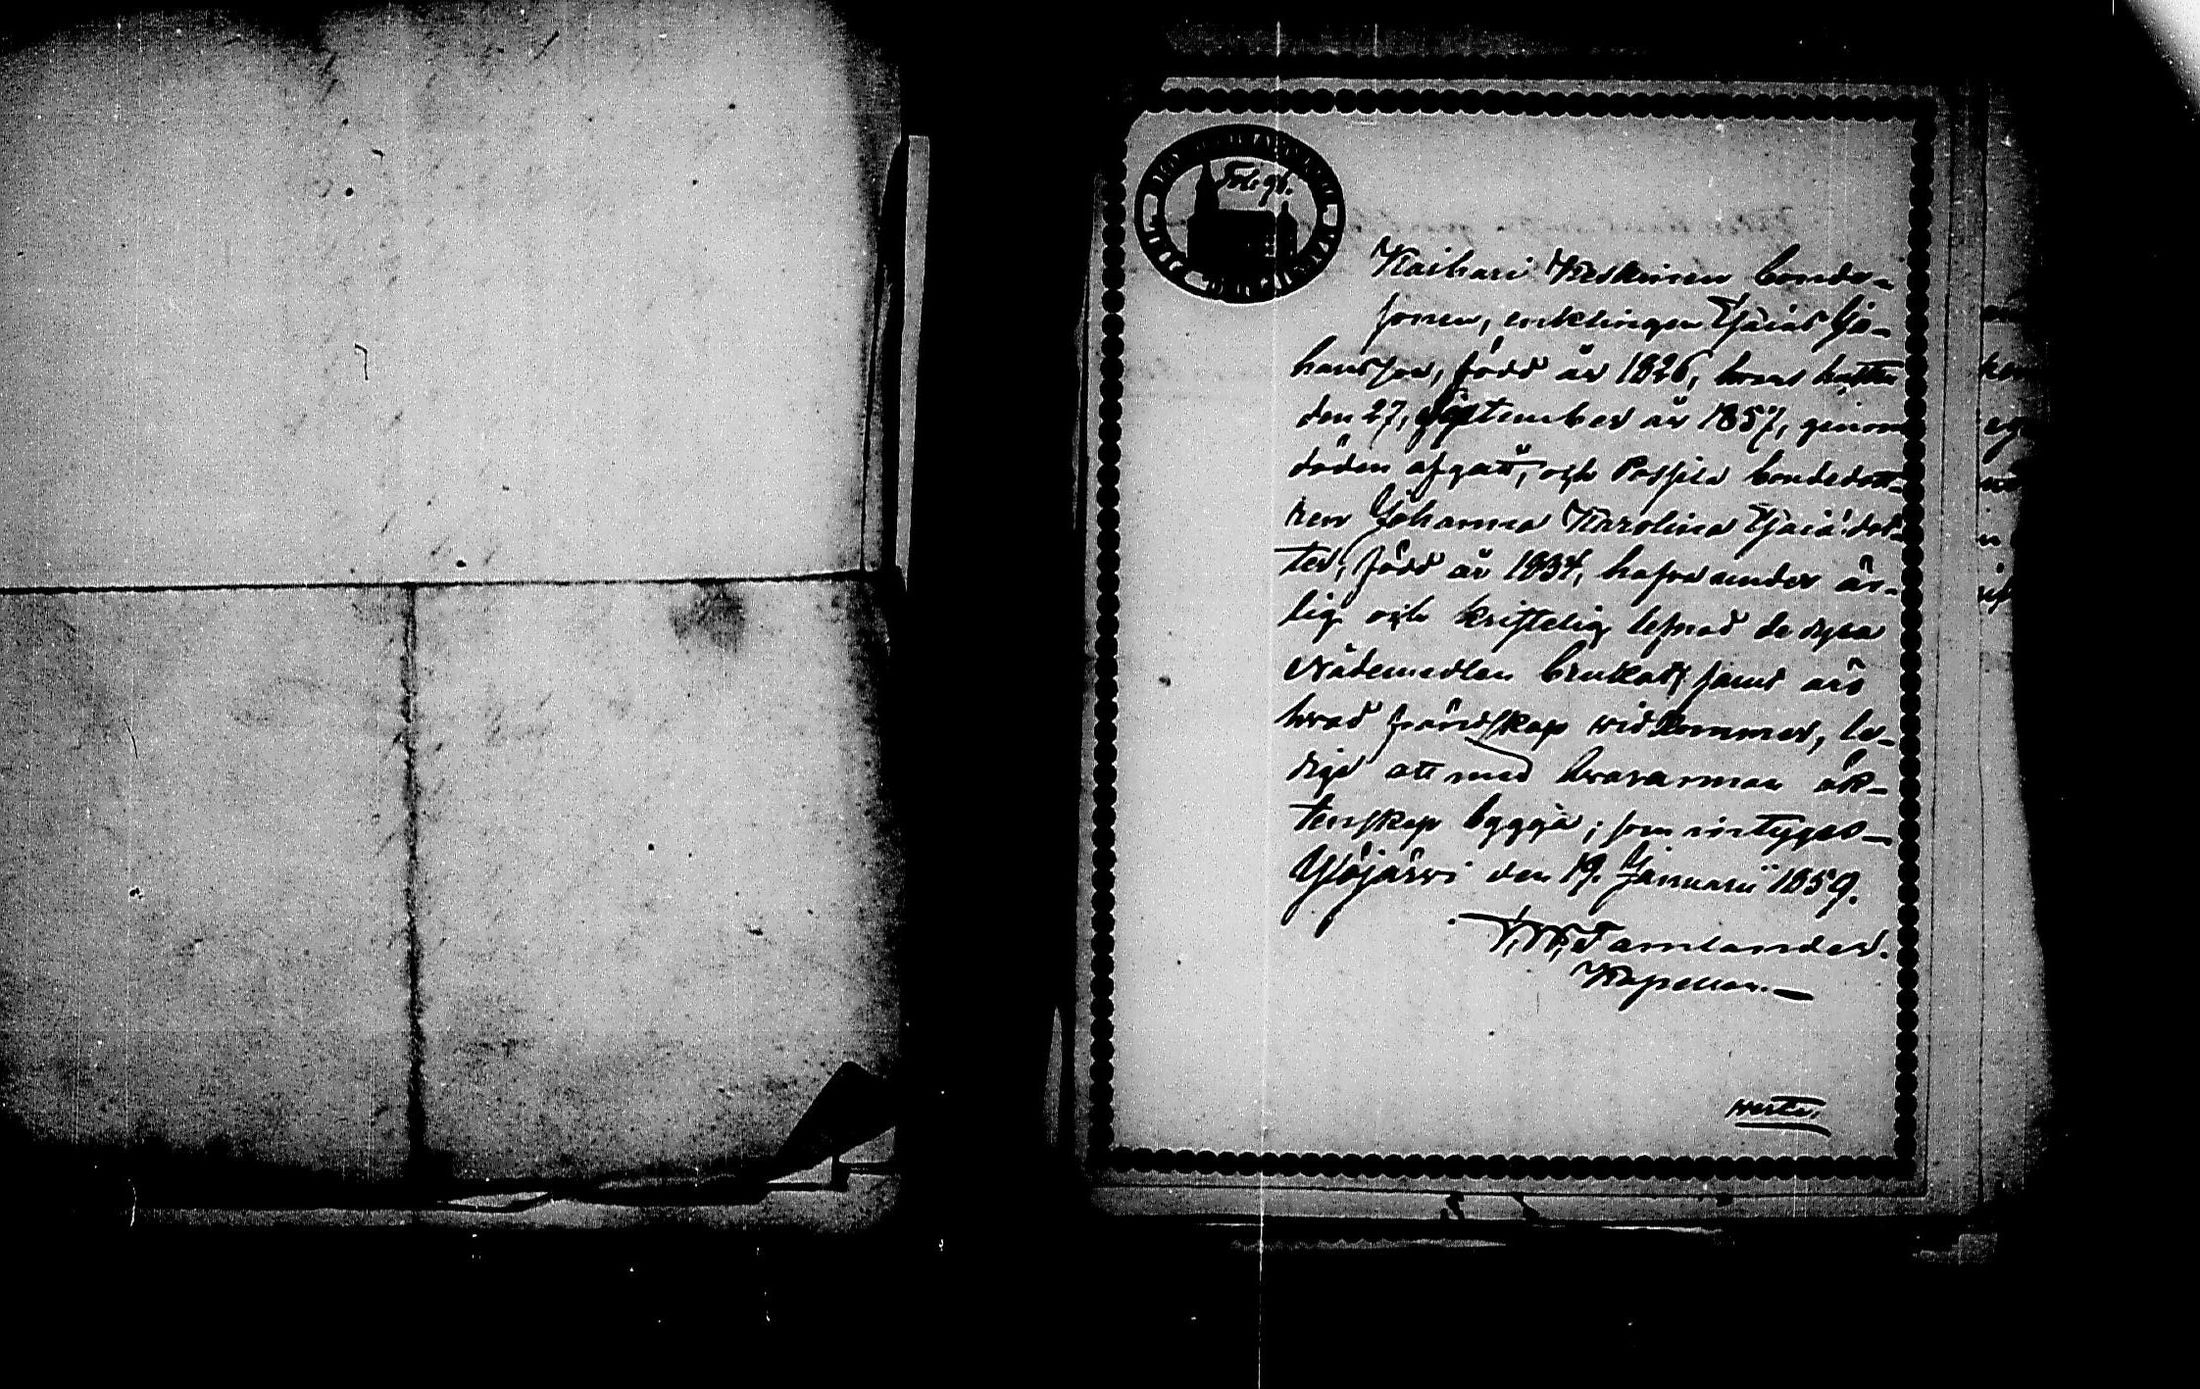 Fol. 91.
Kaihari Keskinen bonde-
sonen, enklingen Esaias Jo-
hansson, född år 1826, hvars hustru
den 27, September år 1857, genom
döden afgått, och Passila bondedott-
ren Johanna Karolina Esaiædot-
ter, född år 1834, hafva under är-
lig och kristelig lefnad de dyra
Nådemedlen brukat, samt äro
hvad frändskap widkommer, le-
diga att med hvarannan äk-
tenskap bygga; som intygas_
Ylöjärvi den 19. Januarii 1859.
Tamlander.
Kapellan._
verte.